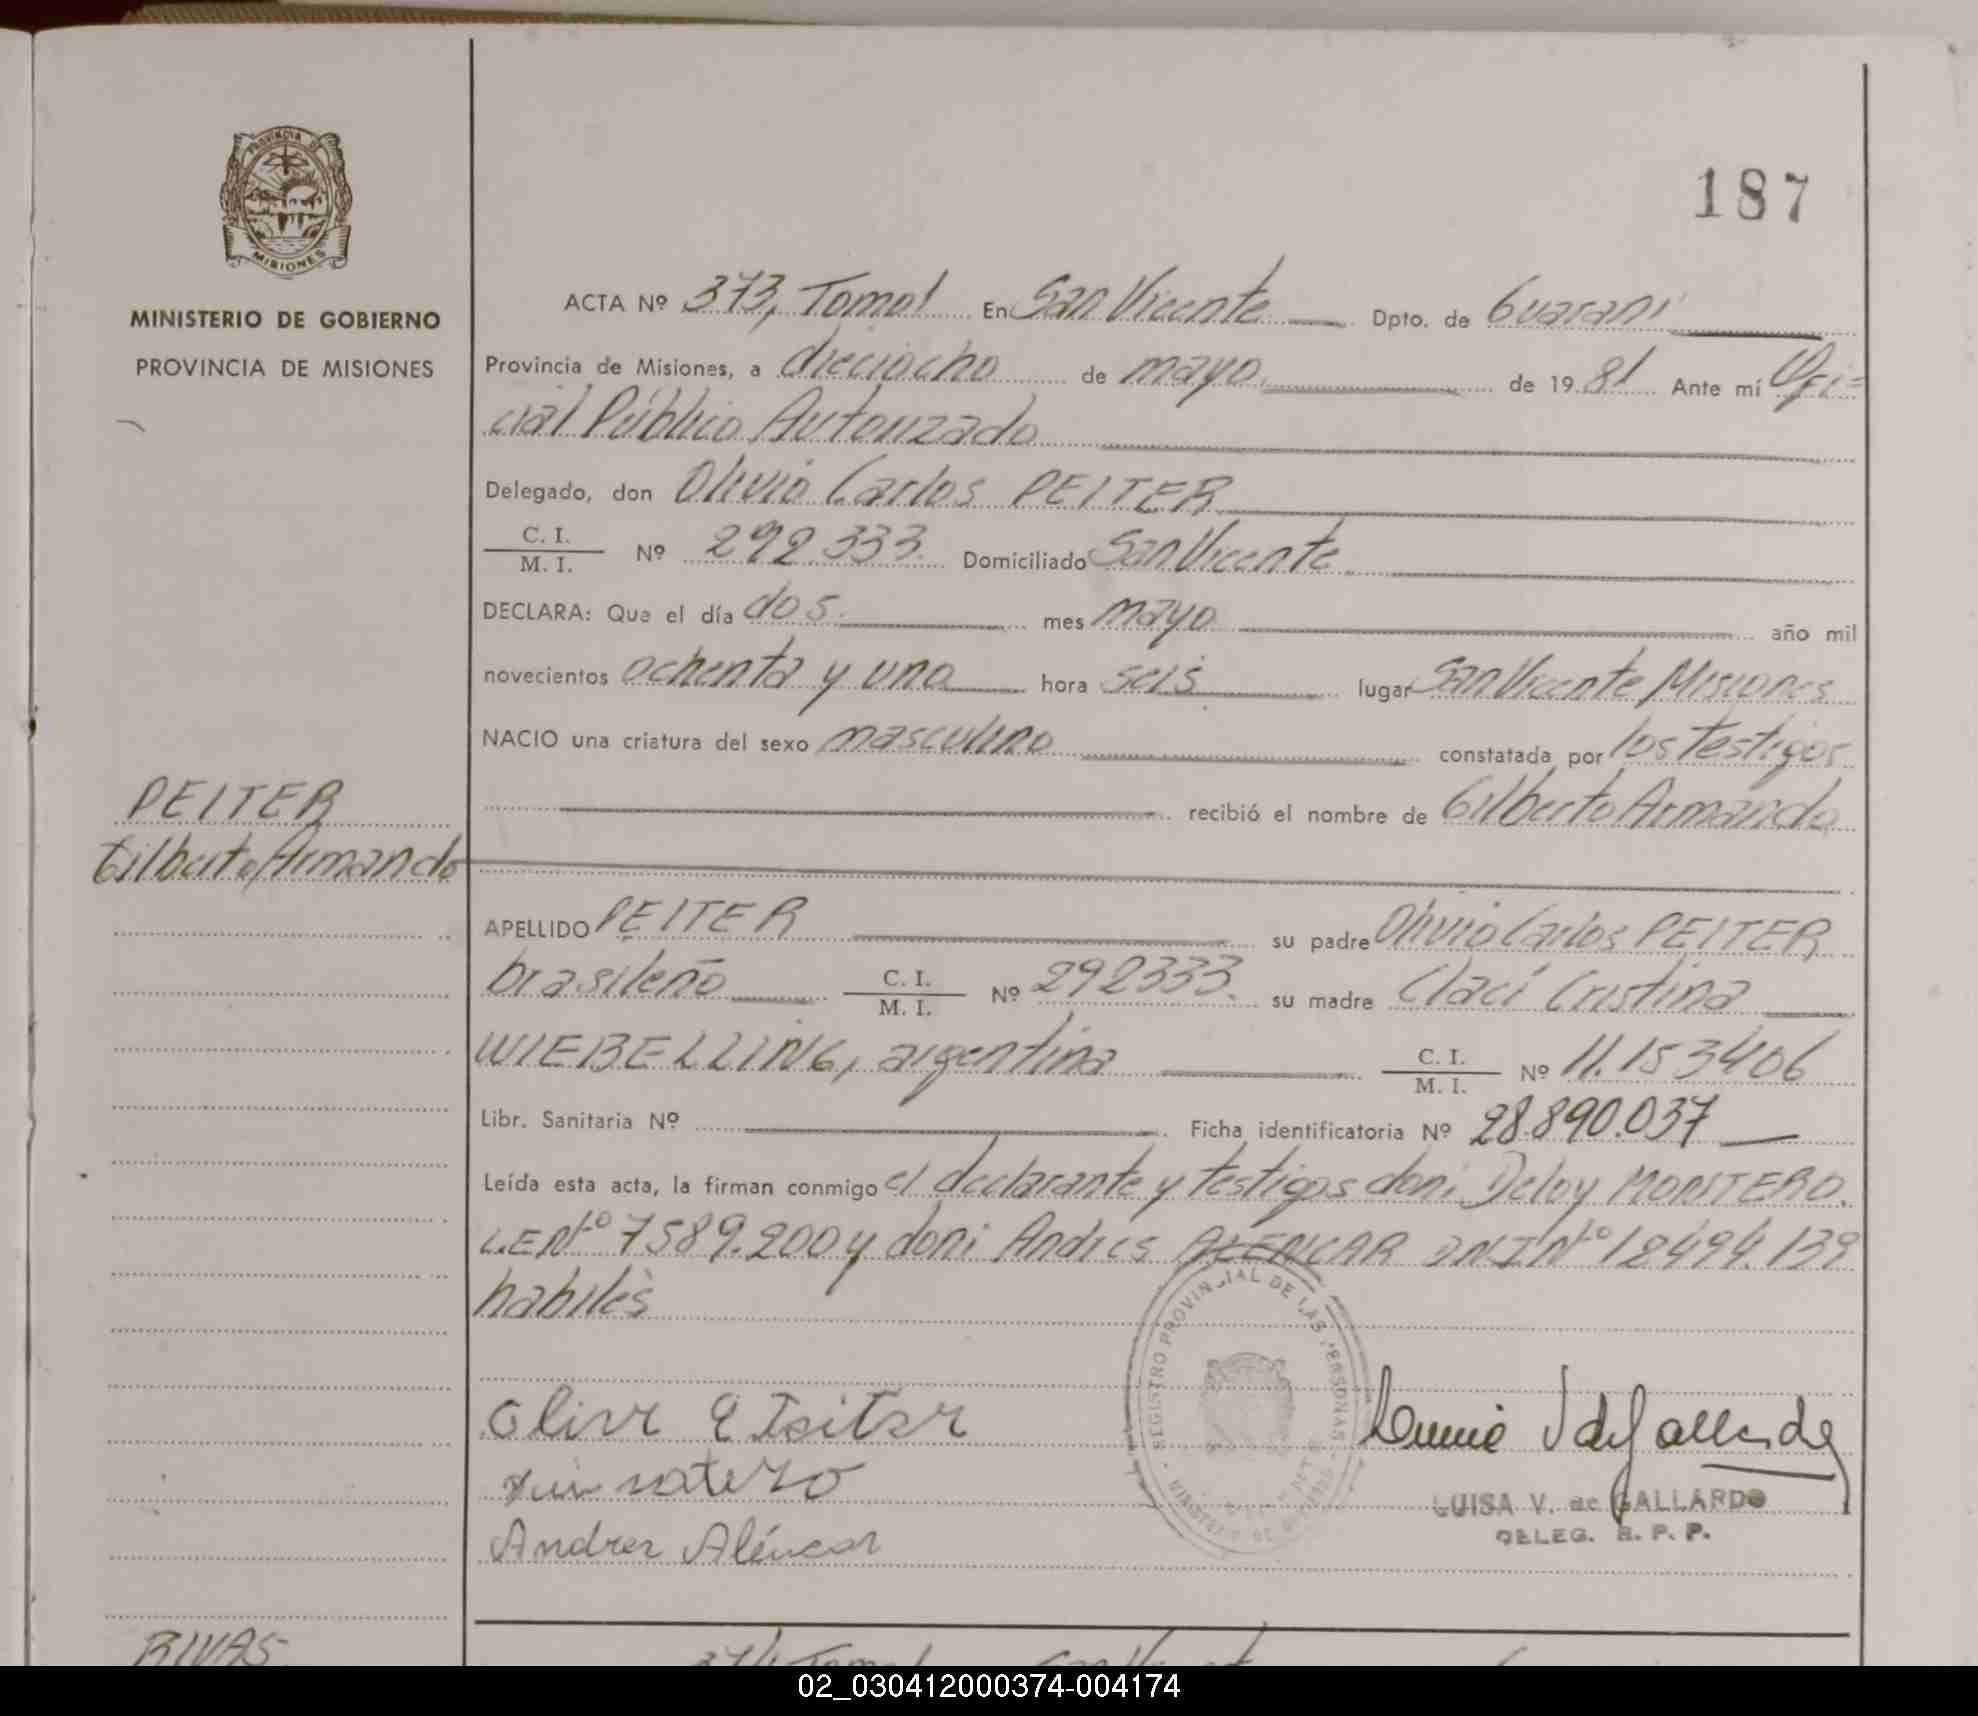 PROVINCIA DE
MISIONES
MINISTERIO DE GOBIERNO
PROVINCIA DE MISIONES
187
ACTA Nº 373, Tomo I En San Vicente Dpto. de Guaraní
Provincia de Misiones, a dieciocho de mayo de 1981 Ante mí Ofi=
cial Público Autorizado
Delegado, don Olivio Carlos PEITER
C. I.
M. I. Nº 292.333. Domiciliado San Vicente
DECLARA: Que el día dos mes mayo año mil
novecientos ochenta y uno hora seis lugar San Vicente Misiones
NACIO una criatura del sexo masculino constatada por los testigos
PEITER
recibió el nombre de Gilberto Armando
Gilberto Armando
APELLIDO PEITER su padre Olivio Carlos PEITER
brasileño C. I. M. I. Nº 292333. su madre Clací Cristina
WIEBELLING, argentina C. I. M. I. Nº 11.153406
Libr. Sanitaria Nº Ficha identificatoria Nº 28.890.037
Leída esta acta, la firman conmigo el declarante y testigos don: Deloy MONTERO.
L.E Nº 7589.200 y don: Andres ALENCAR DNI Nº 18494.139
habiles
REGISTRO PROVINCIAL DE LAS PERSONAS
Andres Aléncar
LUISA V. de GALLARDO
DELEG. R. P. P.
RIVAS
374 Tomo I San Vicente
02_030412000374-004174